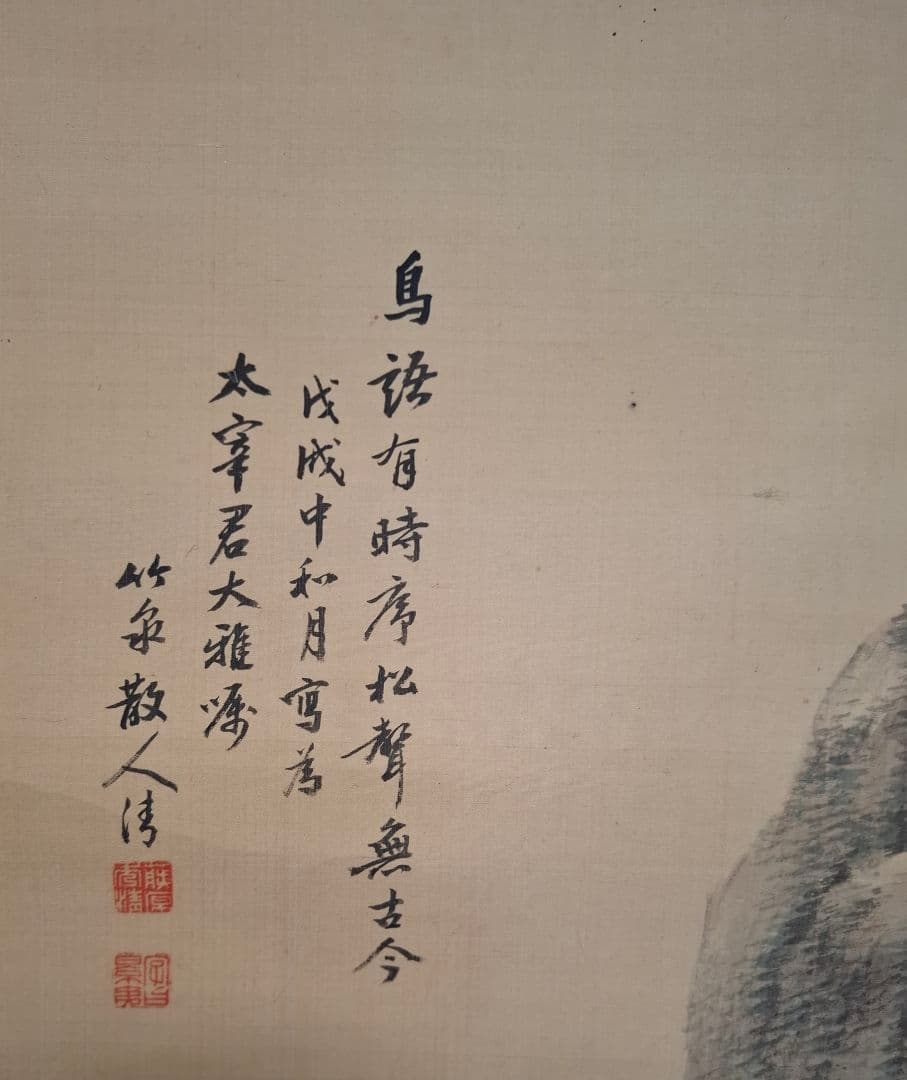 鳥語有時序松聲無古今
戊戌中和月寫為
太宰君大雅嘱
竹泉散人清